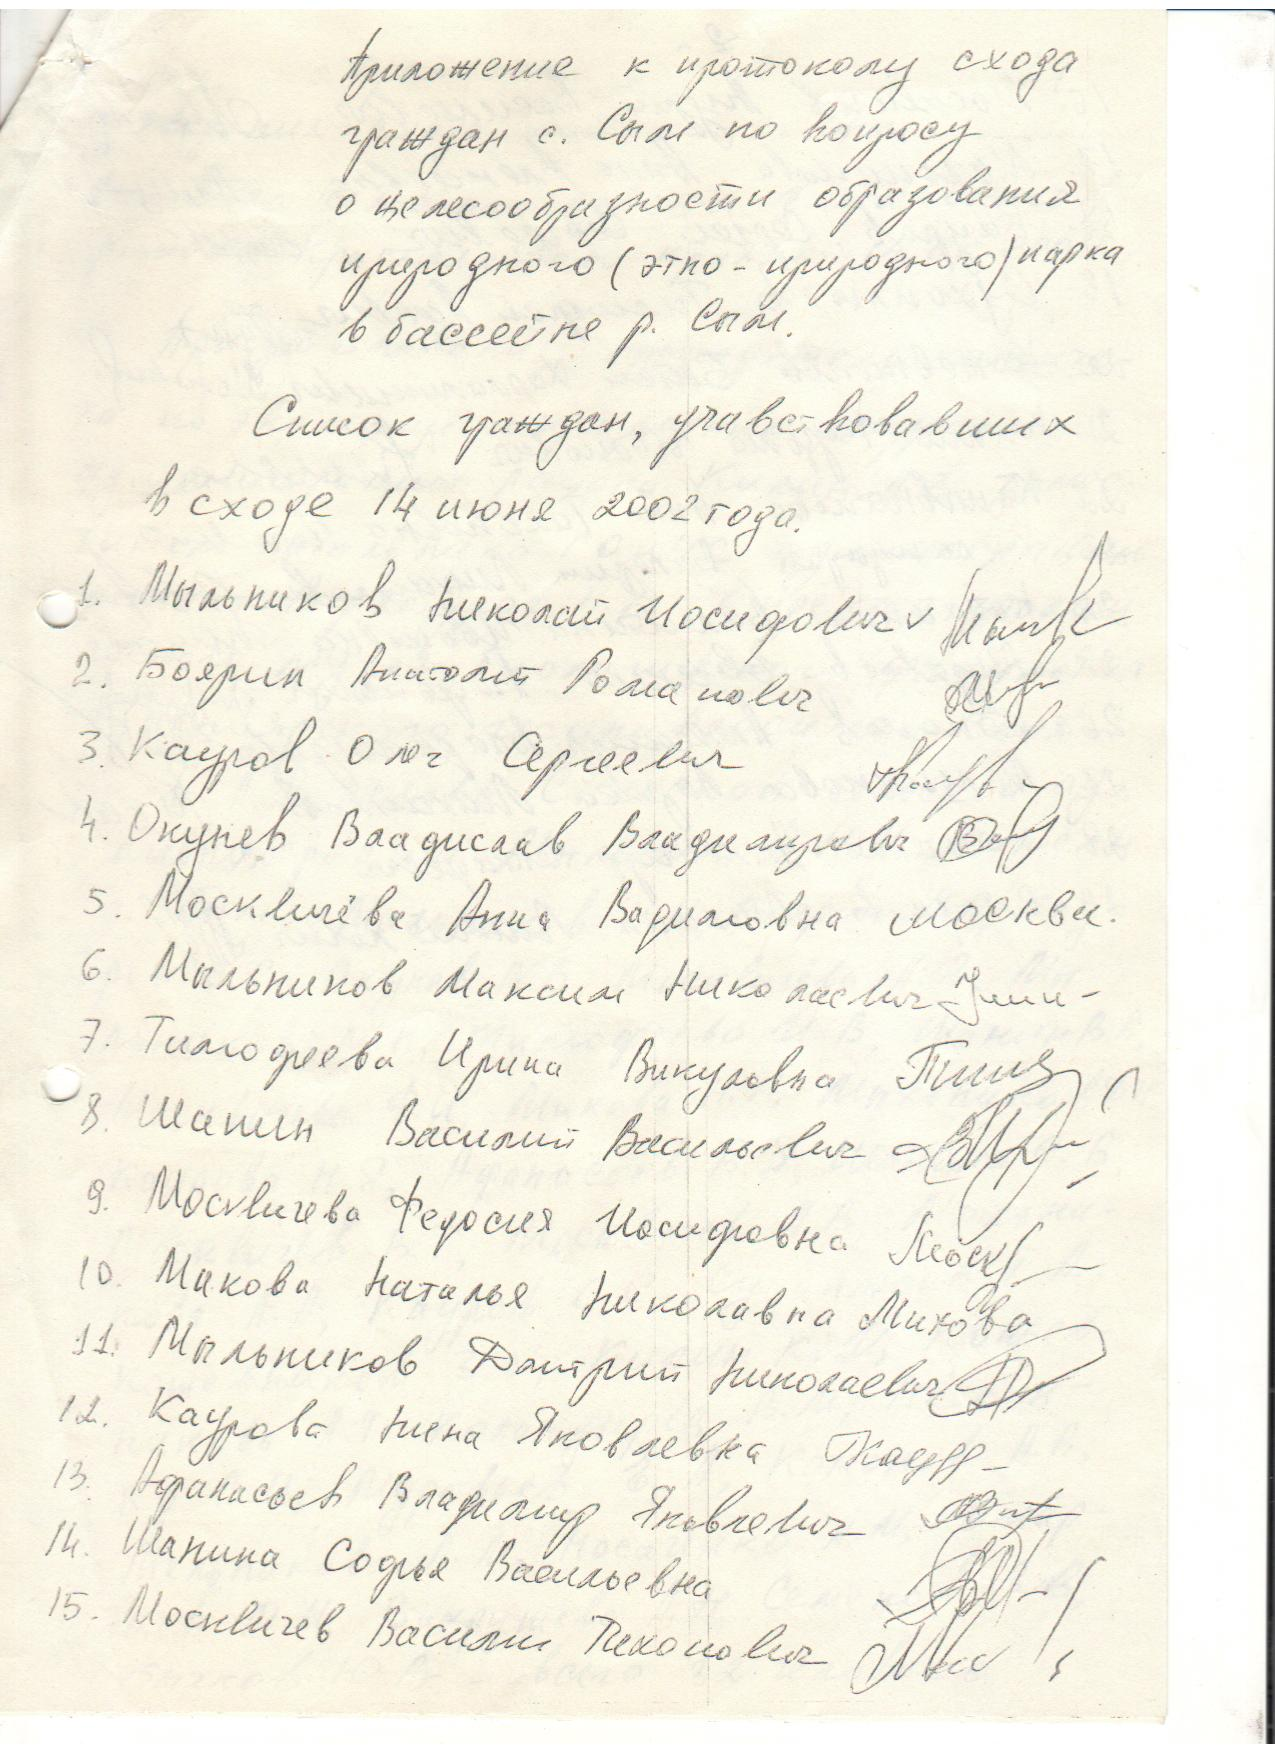 Приложение к протоколу схода
граждан с. Сым по вопросу
о целесообразности образования
природного (этно-природного) парка
в бассейне р. Сым.
Список граждан, учавствовавших
в сходе 14 июня 2002 года.
1. Мыльников Николай Иосифович
2. Боярин Анатолий Романович
3. Кауров Олег Сергеевич
4. Окунев Владислав Владимирович
5. Москвичёва Анна Вадимовна Москвич.
6. Мыльников Максим Николаевич
7. Тимофеева Ирина Викуловна
8. Шанин Василий Васильевич
9. Москвичева Федосия Иосифовна Моск
10. Михова Наталья Николавна Михова
11. Мыльников Дмитрий Николаевич
12. Каурова Нина Яковлевна Каур
13. Афанасьев Владимир Яковлевич
14. Шанина Софья Васильевна
15. Москвичев Василий Тихонович